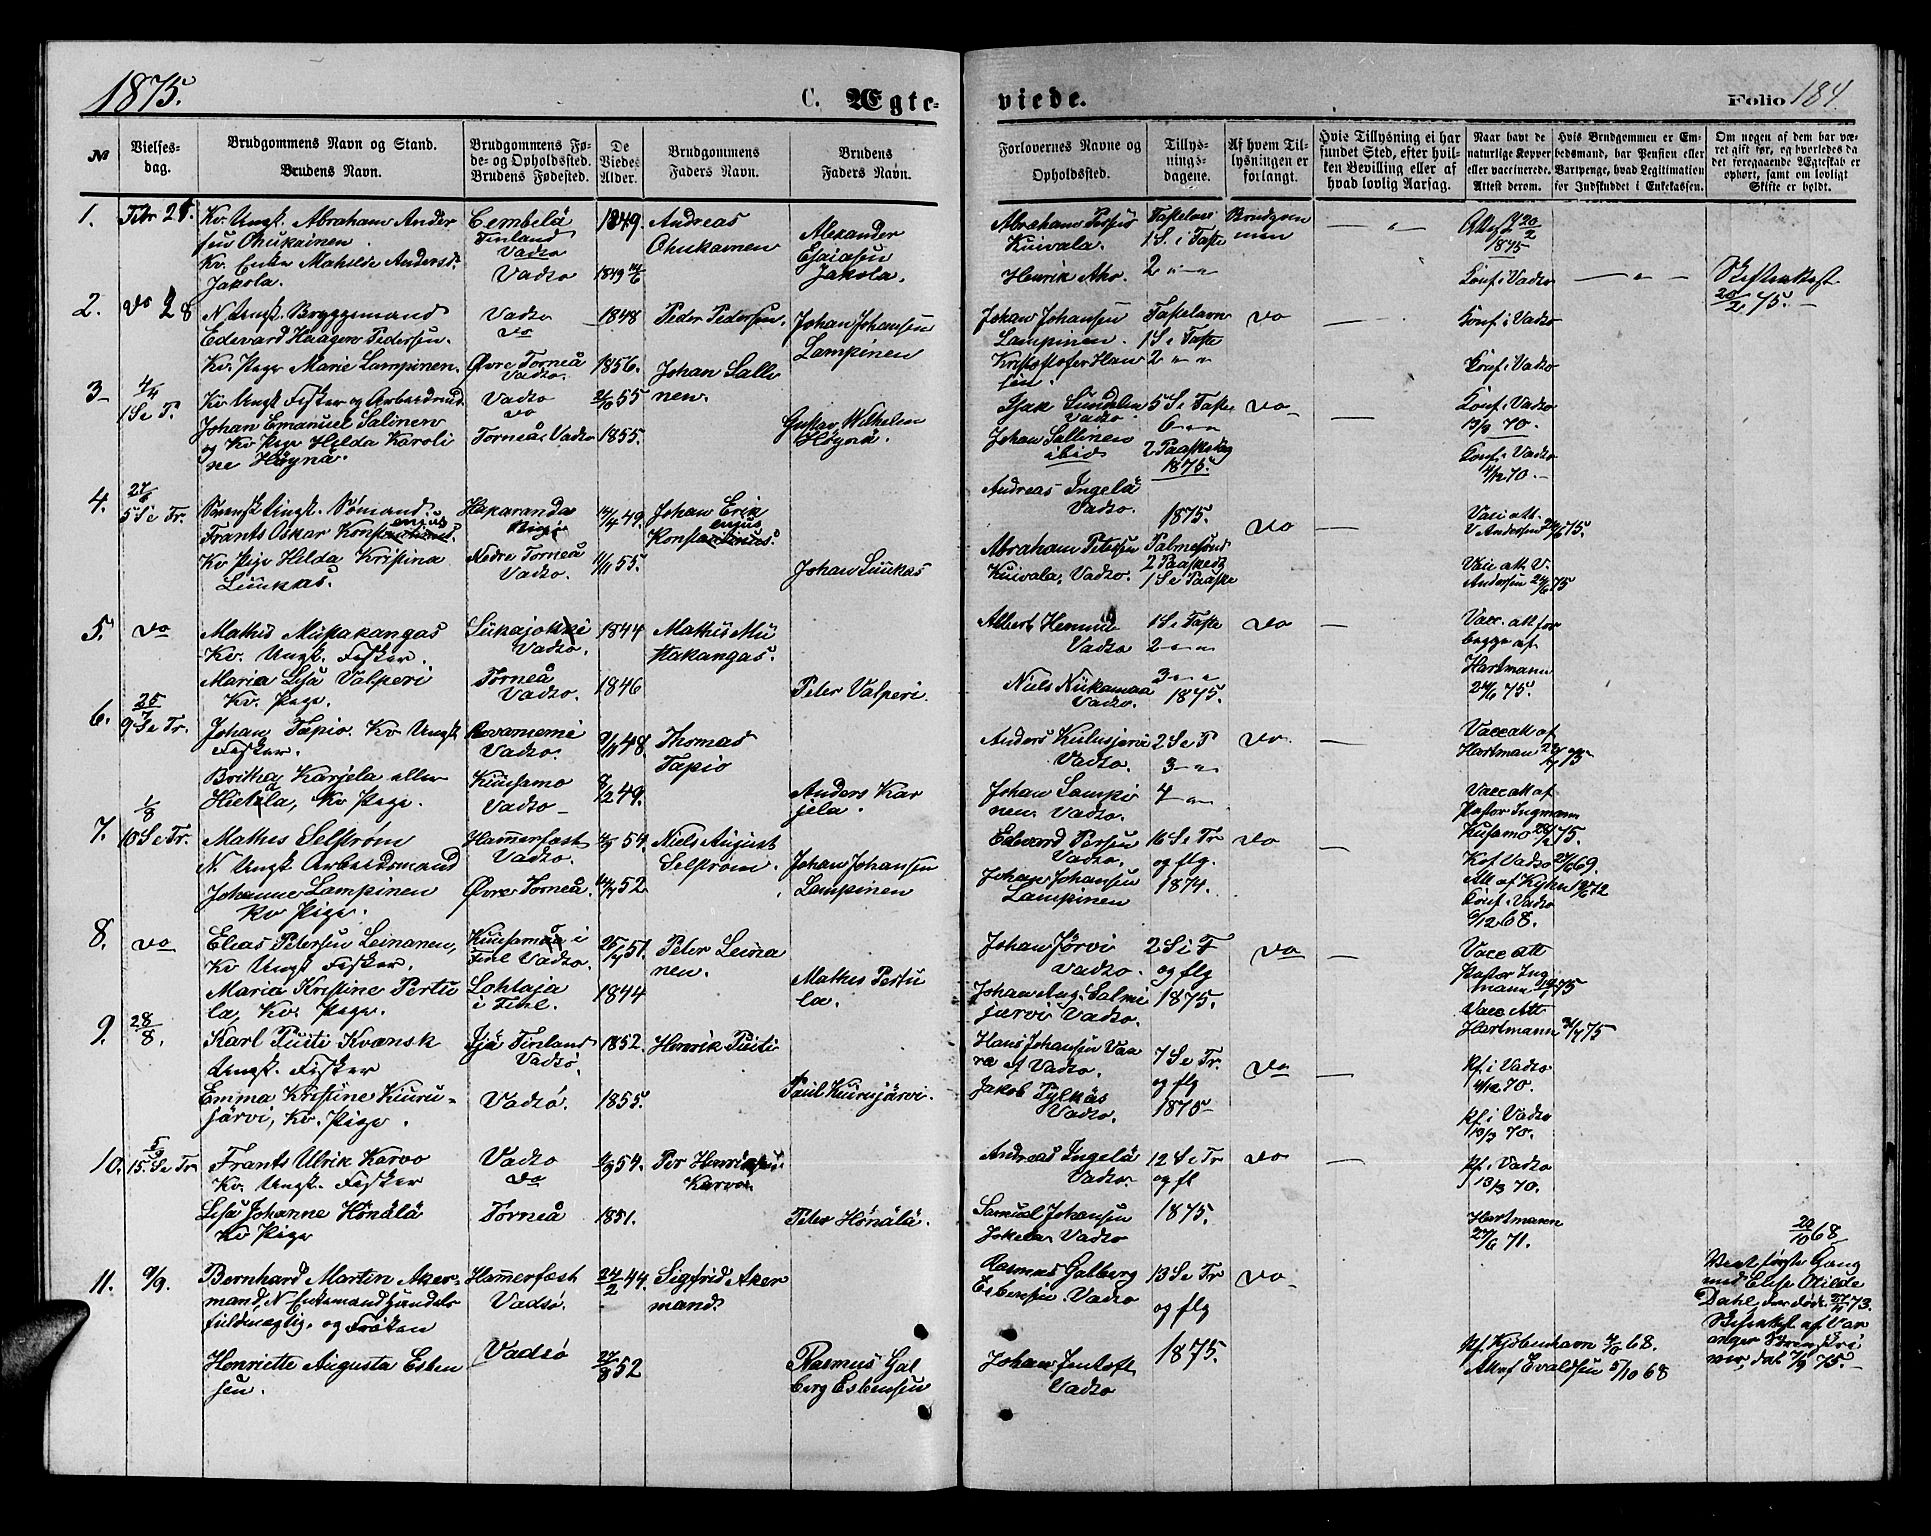 1875.
C. Ægte-
viede.
Folio 184.
№
Vielses-
dag.
Brudgommens Navn og Stand.
Brudens Navn.
Brudgommens Fø-
de- og Opholdssted.
Brudens Fødested.
De
Viedes
Alder.
Brudgommens
Faders Navn.
Brudens
Faders Navn.
Forlovernes Navne og
Opholdssted.
Tillys-
nings-
dagene.
Af hvem Til-
lysningen er
forlangt.
Hvis Tillysning ei har
fundet Sted, efter hvil-
ken Bevilling eller af
hvad lovlig Aarsag.
Naar havt de
naturlige Kopper
eller vaccinerede.
Attest derom.
Hvis Brudgommen er Em-
bedsmand, har Pension eller
Vartpenge, hvad Legitimation
for Indskuddet i Enkekassen.
Om nogen af dem har væ-
ret gift før, og hvorledes da
det foregaaende Ægteskab er
ophørt, samt om lovligt
Skifte er holdt.
1.
Febr 21.
Kv. Ungk. Abraham Ander
sen Ohukainen.
Kv. Enke Mathilde Andersd.
Jakola.
Finland
Vadsø
Vadsø
1849.
1849
Andreas
Ohukainen
Alexander
Esaiasen
Jakola.
Abraham Persen
Kuivala.
Henrik Aho.
Fastelavn
1 S. i Faste
2 " "
Brudgom
men
1875
Conf. i Vadsø
Skifteattest
20/2 75.
2.
Do 28
N Ungk. Bryggemand
Edevard Haagen Pedersen.
Kv. Pige Marie Lampinen.
Vadsø
Do
Øvre Torneå
Vadsø.
1848
1856.
Peder Pedersen.
Johan Johansen
Lampinen
Johan Johansen
Lampinen.
Kristoffer Han
sen.
Fastelavn
1 S. i Faste
2 " "
Do
Conf. i Vadsø
Conf. i Vadsø
3
4/4
1 S e P.
Kv Ungk Fisker og Arbeidsmd
Johan Emanuel Salinen
og Kv Pige Hilda Karoli
ne Høynä.
Vadsø
Do
Torneå, Vadsø
55
1855.
Johan Salli
nen.
Gustav Wilhelm
Høynä.
Isak Sundelin
Vadsø.
Johan Sallinen
ibid
5 S i Faste
6 " "
2 Paaskedag
1875.
Do
Conf. i Vadsø
13/3 70.
Conf. i Vadsø
4/12 70.
4.
27/6
5 S e Tr.
Svensk Ungk. Sømand
Frants Oskar
Kv Pige Hilda Kristina
Liinkas.
Haparanda
Nedre Torneå
Vadsø.
14/4 49.
11/11 55.
Johan Erik
Johan Liinkas
Andreas Ingelä
Vadsø.
Abraham Petersen
Kuivala, Vadsø.
1875.
Palmesønd
2 Paasked
1 S e Paaske
Do
Vacc att.
Andersen 75.
Vacc att V.
Andersen 24/6 75
5.
Do
Mathis Musakangas
Kv. Ungk. Fisker.
Maria Lisa Valperi
Kv. Pige.
Siikajokki
Vadsø.
Torneå
Vadsø.
1844
1846
Mathis Mu
sakangas.
Peter Valperi.
Albert Hemmi
Vadsø
Niels Niikamaa
Vadsø.
1 S i Faste
2 " "
3 " "
1875.
Do
Vacc. att for
begge af
Hartmann
24/6 75.
6.
25/7
9 S e Tr.
Johan Tapio. Kv Ungk
Fisker.
Britha Karjela eller
Hietala, Kv Pige.
Rovaniemi
Vadsø.
Kuusamo
Vadsø
48
8/2 49.
Thomas
Tapio
Anders Kar
jela.
Anders Kulusjervi
Vadsø.
Johan Lampi
nen. Vadsø.
2 S e P
3 " "
4 " "
Do.
Vacc att af
Hartman
Vacc att af
Pastor Ingmann
Kusamo 75.
7.
1/8
10 S e Tr.
Mathis Selstrøm
N. Ungk Arbeidsmand
Johanne Lampinen
Kv Pige.
Hammerfest
Vadsø.
Øvre Torneå.
54.
52.
Niels August
Selstrøm.
Johan Johansen
Lampinen
Edevard Persen
Vadsø.
Johan Johansen
Lampinen
16 S e Tr
og flg.
1874.
Do
Kof Vadsø 69.
Conf. i Vadsø
6/12 68.
8.
Do
Elias Petersen Leinanen,
Kv Ungk Fisker.
Maria Kristine Pertu
la, Kv. Pige.
Kuusamo i
Finl Vadsø.
Lohtaja
i Finl.
51.
1844
Peter Leina
nen.
Mathis Pertu
la.
Johan Jørvi
Vadsø.
Johan Aug. Salmi
järvi Vadsø.
2 S i F
og flg
1875.
Do
Vacc att
Pastor Ing
mann 75
Vacc Att
Hartmann 75
9.
28/8.
Karl Pusti Kvænsk
Ungk. Fisker
Emma Kristine Kuuru-
järvi, Kv. Pige.
Ijå Finland
Vadsø.
Vadsø.
1852.
1855.
Henrik Pusti
Paul Kuurujärvi.
Hans Johansen Vaa
ra af Vadsø.
Jakob Pylkäs
Vadsø.
7 S e Tr.
og flg
1875
Do
Kf. i Vadsø
4/12 70.
Kf. i Vadsø
13/3 70.
10.
5/9
15. S e Tr
Frants Ulrik Karvo
Kv. Ungk. Fisker
Lisa Johanne Hønälä
Kv Pige
Vadsø
Do
Torneå
54.
1851.
Per Henriksen
Karvo.
Peter Hønälä.
Andreas Ingelä
Vadsø.
Samuel Johansen
Jokela, Vadsø.
12 S e Tr
og fl
1875.
Do
Kf. i Vadsø
13/3 70.
Hartmann
27/6 71.
11.
9/9.
Bernhard Marten Aker-
mand, N. Enkemand Handels
fuldmægtig, og Frøken
Henriette Augusta Esben
sen.
Hammerfest
Vadsø.
Vadsø
24/2 44.
27/8 52
Sigfrid Aker
mand.
Rasmus Gal
berg Esbensen
Rasmus Galberg
Esbensen. Vadsø
Johan Jentoft
Vadsø
13 S e Tr
og flg
1875.
Do
Kf. Kjøbenhavn 68.
Att af Evaldsen 5/10 68
20/10 68
Viet første Gang
med Elise Otilde
Dahl, der døde 73.
Skifteattest af Var
anger Sorenskri
ver, dat 7/9 75.